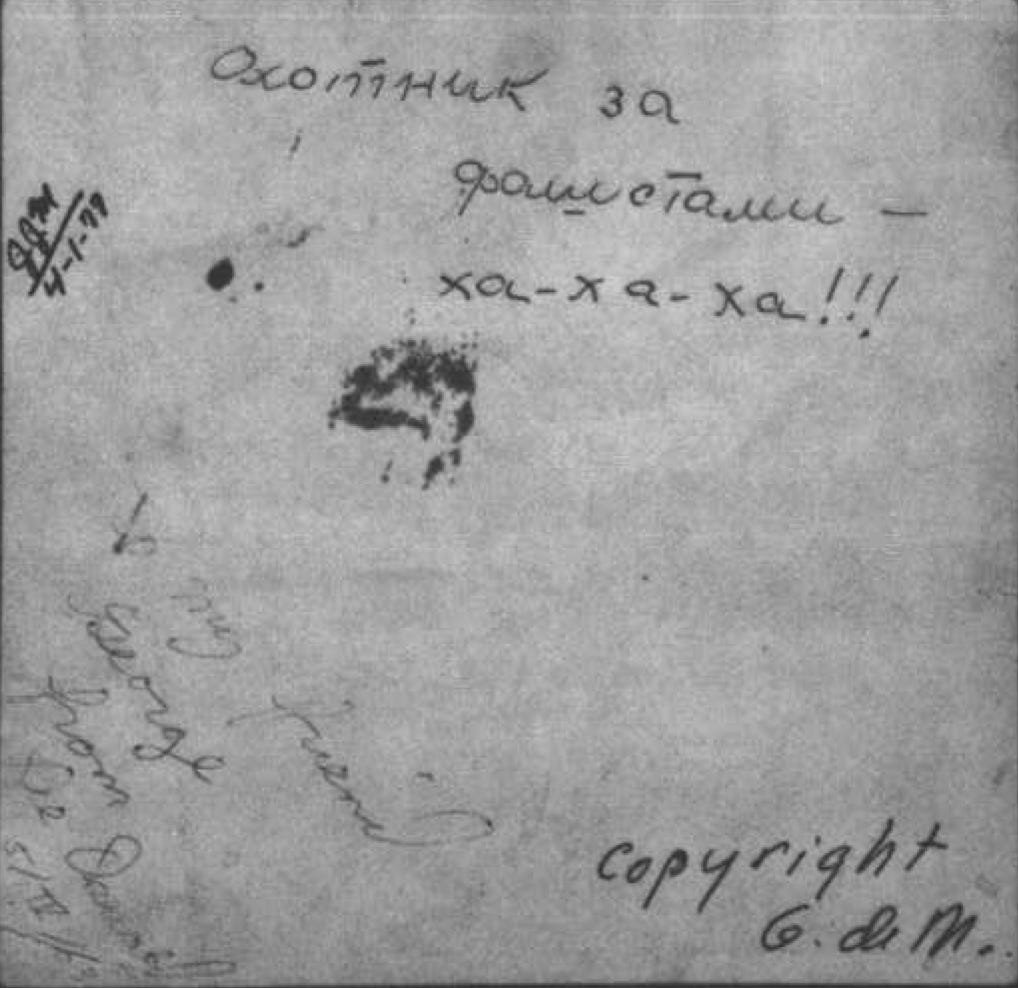 Охотник за
фашистами —
ха-ха-ха!!!
4-1-77
To my friend
George
from
copyright
G. de M.